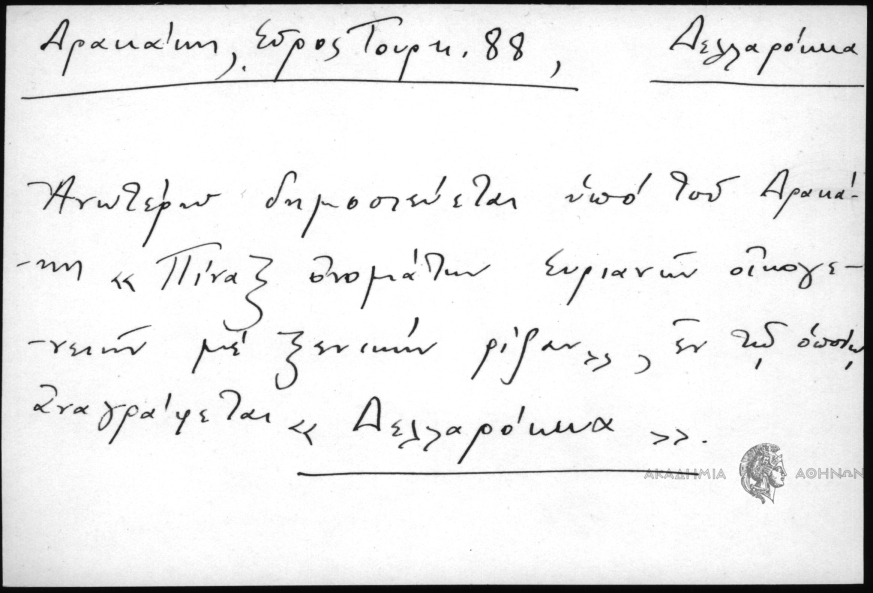 Δρακάκη, Σύρος Τουρκ. 88, Δελλαρόκκα
Ἀνωτέρω δημοσιεύεται ὑπό τοῦ Δρακά-
-κη « Πίναξ ὀνομάτων Συριανῶν οἰκογε-
-νειῶν μέ ξενικήν ρίζαν», ἐν τῷ ὁποίῳ
ἀναγράφεται « Δελλαρόκκα ».
ΑΚΑΔΗΜΙΑ ΑΘΗΝΩΝ